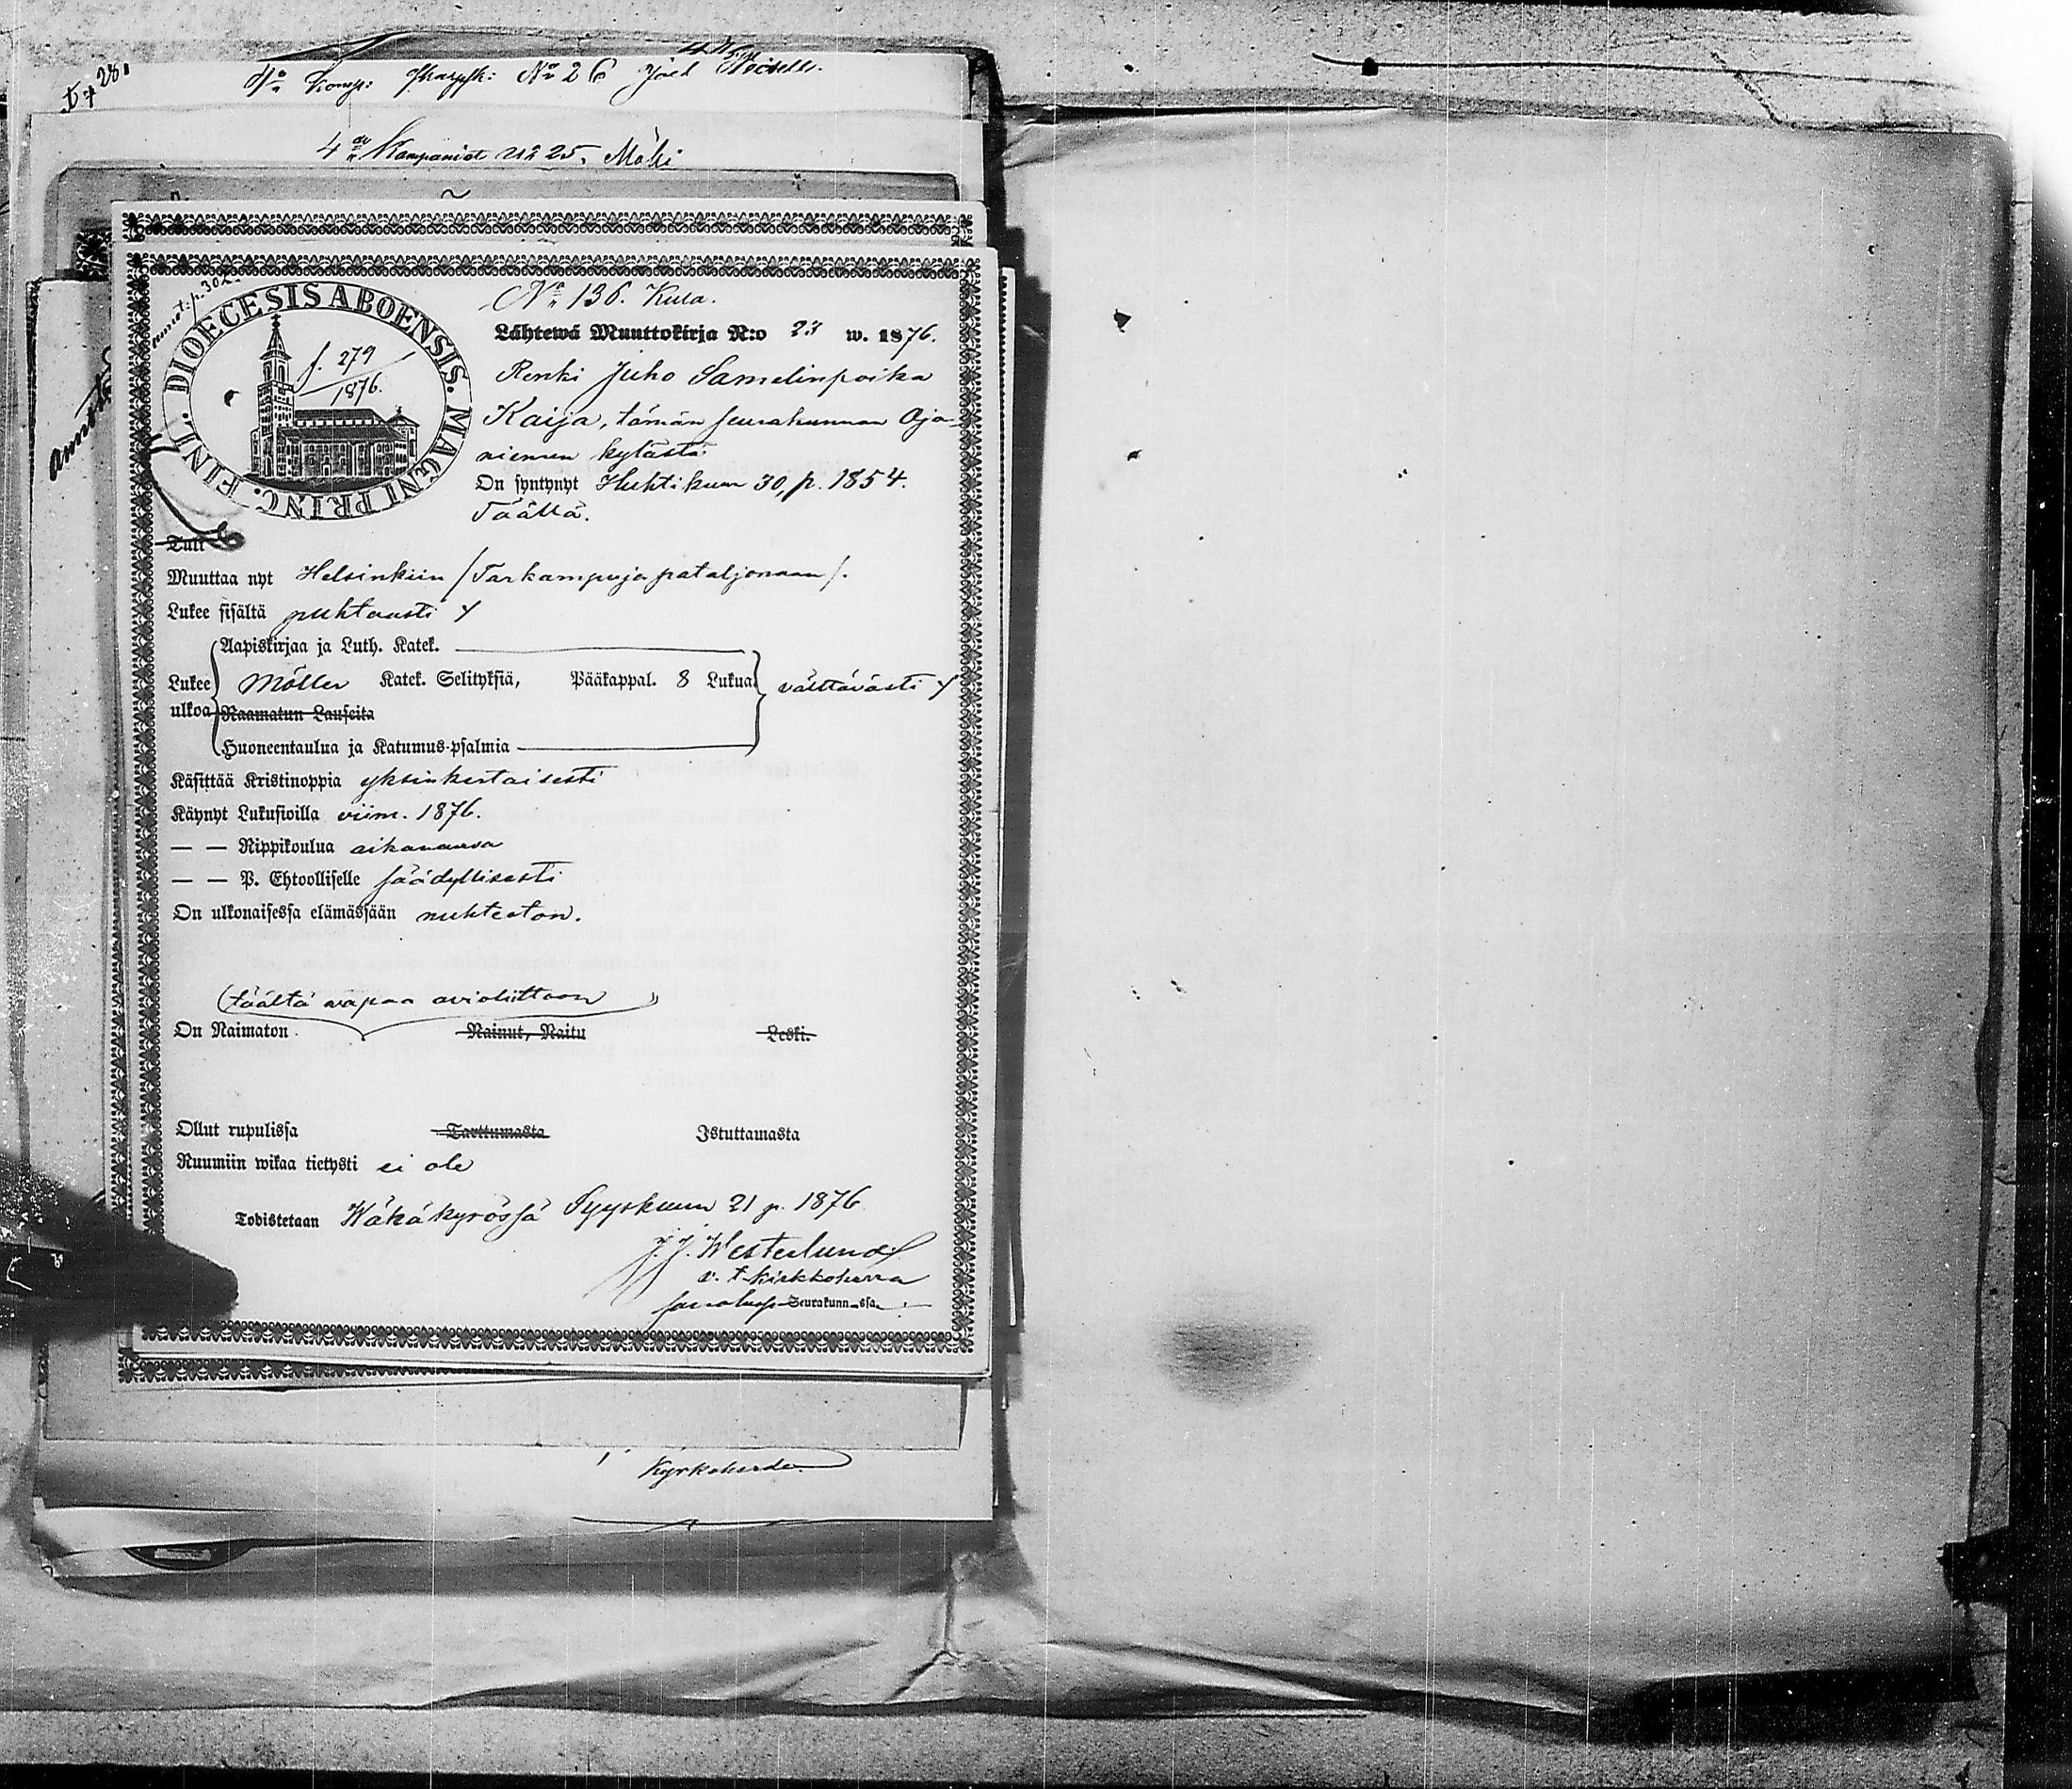 4de Komp: Skarpsk: No 26 Joel
4de Kompaniet No 25. Mäki
annot. p. 302.
DIOECESIS ABOENSIS. MAGNI PRINC. FINL.
f. 279
1876.
No 136. Kusa.
Lähtewä Muuttokirja N:o 23 w. 1876.
Renki Juho Samelinpoika
Kaija, tämän seurakunnan Oja-
niemen kylästä
On syntynyt Huhtikuun 30, p. 1854.
Täällä.
Tuli
Muuttaa nyt Helsinkiin /Tarkampujapataljonaan/.
Lukee sisältä puhtaasti
Aapiskirjaa ja Luth. Katek.
Lukee ulkoa Möller Katek. Selityksiä, Pääkappal. 8 Lukua välttävästi
Raamatun Lauseita
Huoneentaulua ja Katumus-psalmia
Käsittää Kristinoppia yksinkertaisesti
Käynyt Lukusioilla viim. 1876.
— — Rippikoulua aikanansa
— — P. Ehtoolliselle säädyllisesti
On ulkonaisessa elämässään nuhteeton.
(täältä vapaa avioliittoon)
On Naimaton Nainut, Naitu Leski.
Ollut rupulissa Tarttumasta Istuttamasta
Ruumiin wikaa tietysti ei ole
Todistetaan Wähäkyrössä Syyskuun 21 p. 1876
J. J. Westerlund
v. t. kirkkoherra
Seurakunn-ssa.
Kyrkoherde